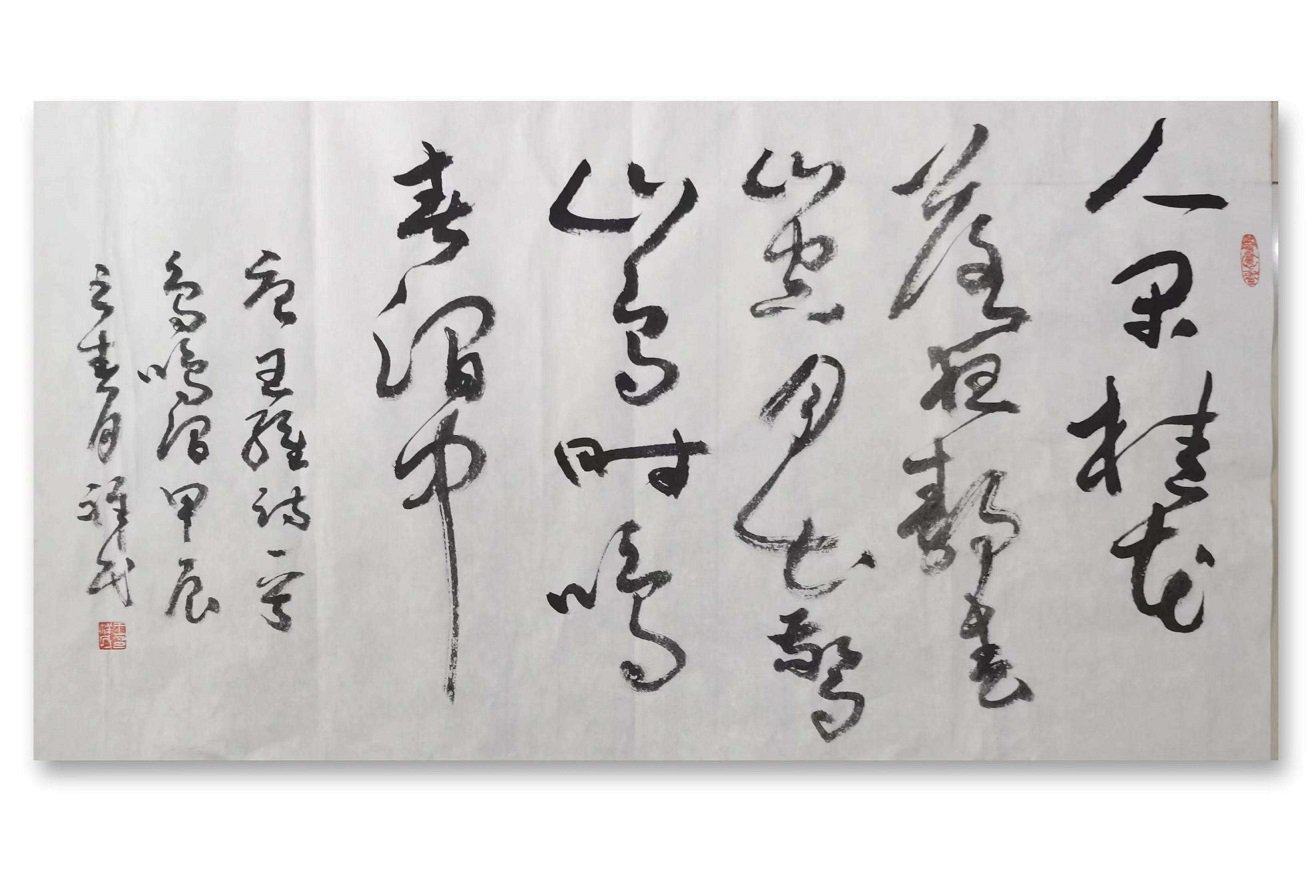 人闲桂花
落夜静春
山空月出驚
山鸟时鸣
春涧中
唐王維诗一首
鸟鸣涧甲辰
之春月